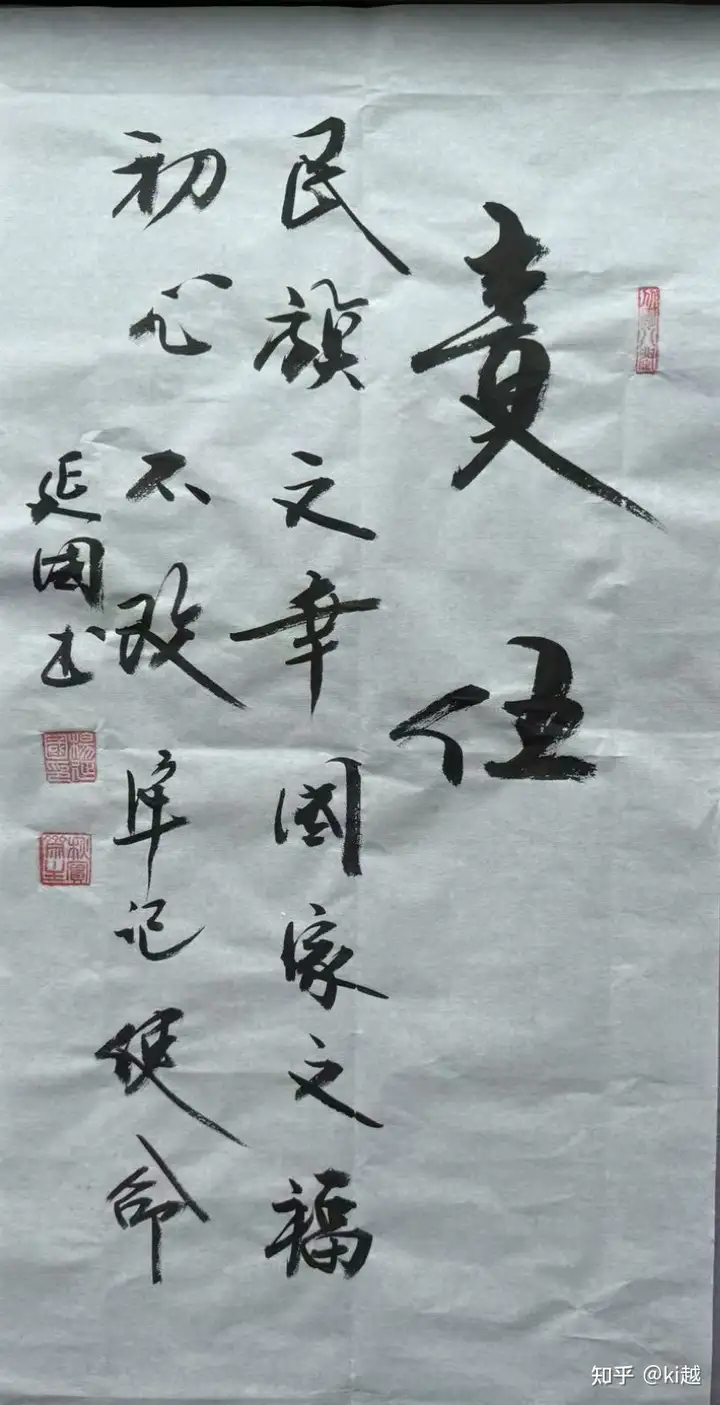 责任
民族之幸國家之福
初心不改牢记使命
延國书
知乎 @ki越